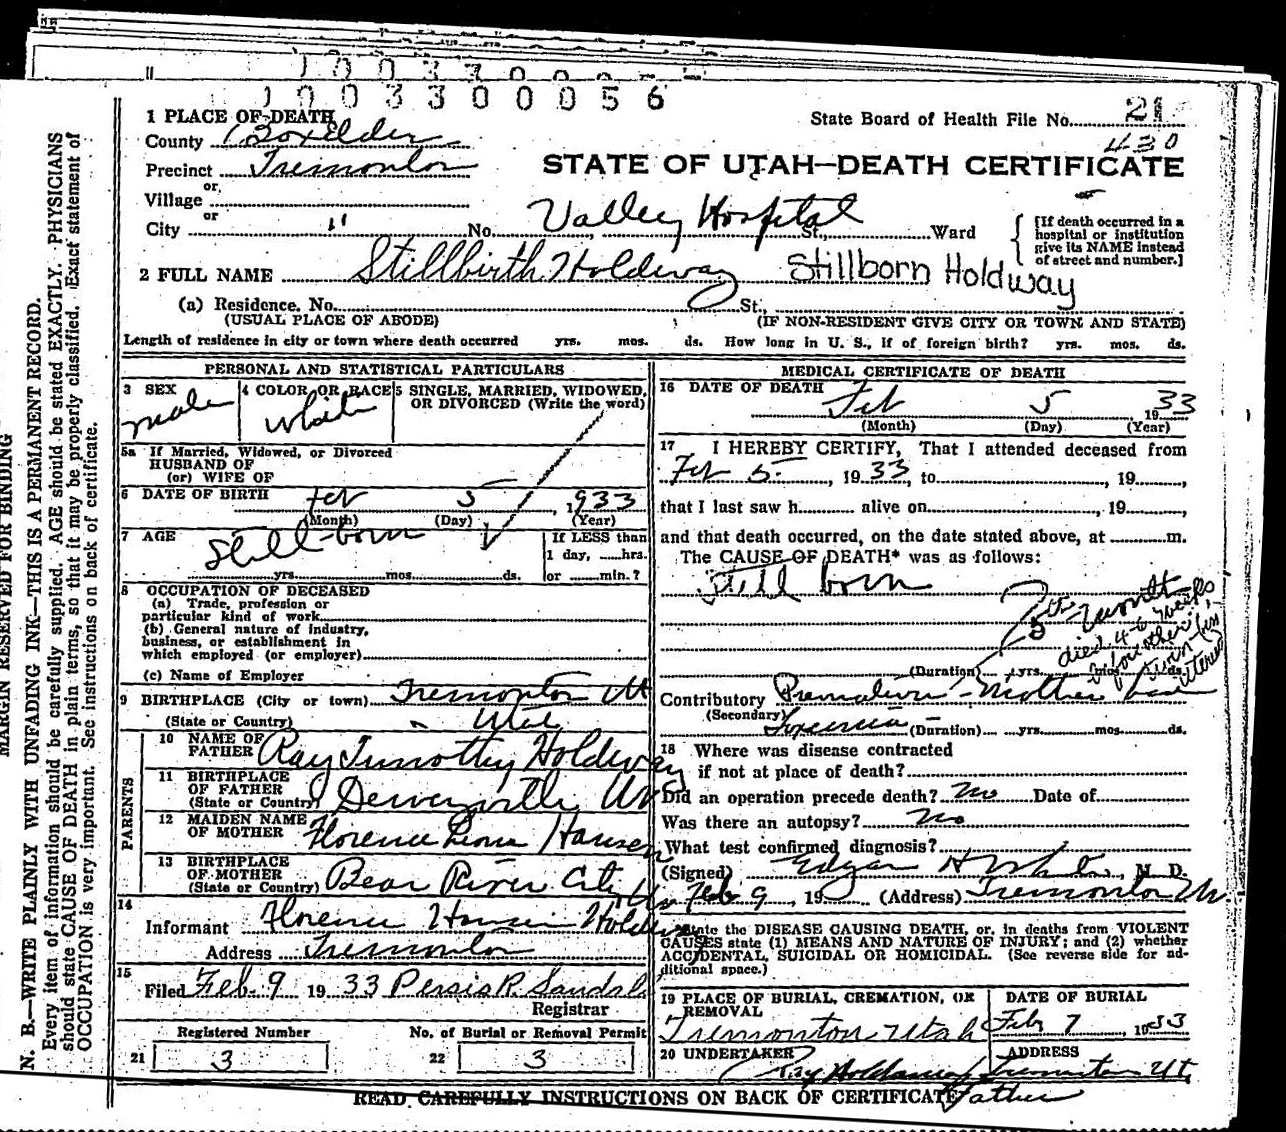 1003300056
1 PLACE OF DEATH
County Boxelder
State Board of Health File No. 21
430
Precinct Tremonton
STATE OF UTAH—DEATH CERTIFICATE
or
Village
or
City " No. Valley Hospital St., Ward
[If death occurred in a hospital or institution give its NAME instead of street and number.]
2 FULL NAME Stillbirth Holdway Stillborn Holdway
(a) Residence. No. St.,
(USUAL PLACE OF ABODE) (IF NON-RESIDENT GIVE CITY OR TOWN AND STATE)
Length of residence in city or town where death occurred yrs. mos. ds. How long in U. S., if of foreign birth? yrs. mos. ds.
PERSONAL AND STATISTICAL PARTICULARS
3 SEX male
4 COLOR OR RACE white
5 SINGLE, MARRIED, WIDOWED, OR DIVORCED (Write the word)
5a If Married, Widowed, or Divorced
HUSBAND OF
(or) WIFE OF
6 DATE OF BIRTH Feb 5, 1933
(Month) (Day) (Year)
7 AGE Still-born
yrs. mos. ds.
If LESS than
1 day, hrs.
or min.?
8 OCCUPATION OF DECEASED
(a) Trade, profession or
particular kind of work
(b) General nature of industry,
business, or establishment in
which employed (or employer)
(c) Name of Employer
9 BIRTHPLACE (City or town) Tremonton Ut
(State or Country) " Utah
PARENTS
10 NAME OF FATHER Ray Timothy Holdway
11 BIRTHPLACE OF FATHER (State or Country) Deweyville Ut
12 MAIDEN NAME OF MOTHER Florence Hansen
13 BIRTHPLACE OF MOTHER (State or Country) Bear River City Ut
14
Informant Florence Hansen Holdway
Address Tremonton
15
Filed Feb. 9 1933 Persis R.
Registrar
Registered Number
21 3
No. of Burial or Removal Permit
22 3
MEDICAL CERTIFICATE OF DEATH
16 DATE OF DEATH
Feb 5, 1933
(Month) (Day) (Year)
17 I HEREBY CERTIFY, That I attended deceased from
Feb 5, 1933, to , 19
that I last saw h alive on , 19
and that death occurred, on the date stated above, at m.
The CAUSE OF DEATH* was as follows:
Still born
5th month
died 4-6 weeks
(Duration) yrs. mos. ds.
Contributory Premature - Mother had
(Secondary) Toxemia (Duration) yrs. mos. ds.
18 Where was disease contracted
if not at place of death?
Did an operation precede death? no Date of
Was there an autopsy? No
What test confirmed diagnosis?
(Signed) Edgar H. White, M. D.
Feb 9, 19 (Address) Tremonton Ut.
*State the DISEASE CAUSING DEATH, or, in deaths from VIOLENT
CAUSES state (1) MEANS AND NATURE OF INJURY; and (2) whether
ACCIDENTAL, SUICIDAL OR HOMICIDAL. (See reverse side for ad-
ditional space.)
19 PLACE OF BURIAL, CREMATION, OR REMOVAL
Tremonton Utah
DATE OF BURIAL
Feb 7, 1933
20 UNDERTAKER
Ray Holdaway
ADDRESS
Tremonton Ut.
Father
READ CAREFULLY INSTRUCTIONS ON BACK OF CERTIFICATE
MARGIN RESERVED FOR BINDING
N. B.—WRITE PLAINLY WITH UNFADING INK—THIS IS A PERMANENT RECORD.
Every item of information should be carefully supplied. AGE should be stated EXACTLY. PHYSICIANS
should state CAUSE OF DEATH in plain terms, so that it may be properly classified. Exact statement of
OCCUPATION is very important. See instructions on back of certificate.